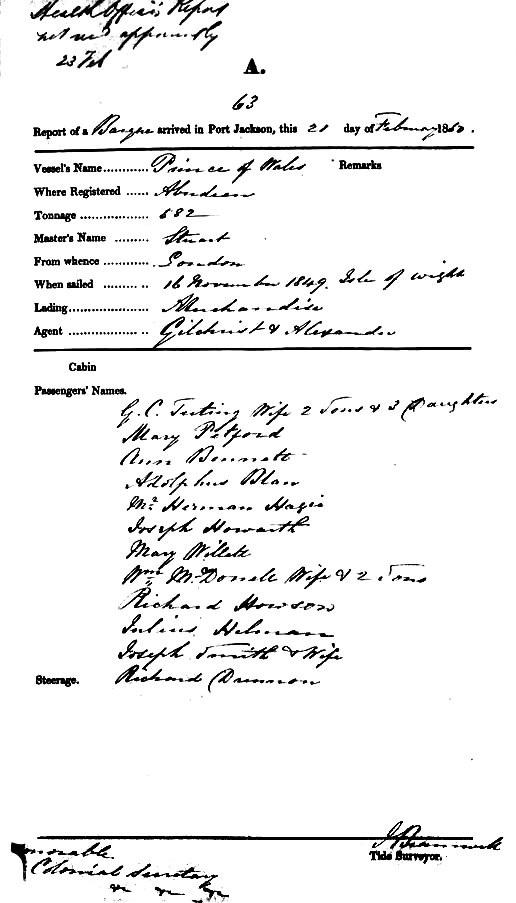 Health Officer's Report
not recd apparently
23 Feb
A.
63
Report of a Barque arrived in Port Jackson, this 21 day of February 1850.
Vessel's Name............ Prince of Wales Remarks
Where Registered ...... Aberdeen
Tonnage .................. 582
Master's Name ......... Stuart
From whence ............ London
When sailed ......... .. 16 November 1849. Isle of wight
Lading..................... Merchandise
Agent .................. .. Gilchrist & Alexander
Cabin
Passengers' Names.
G. C. Tuting Wife 2 Sons & 3 Daughters
Mary Petford
Ann Bennett
Adolphus Blau
Mr Herman Hagis
Joseph Howarth
Mary Willett
Wm McDonell Wife & 2 Sons
Richard Howson
Julius Helman
Joseph Smith & Wife
Steerage. Richard Drennon
Tide Surveyor.
Honorable
Colonial Secretary
&c &c &c